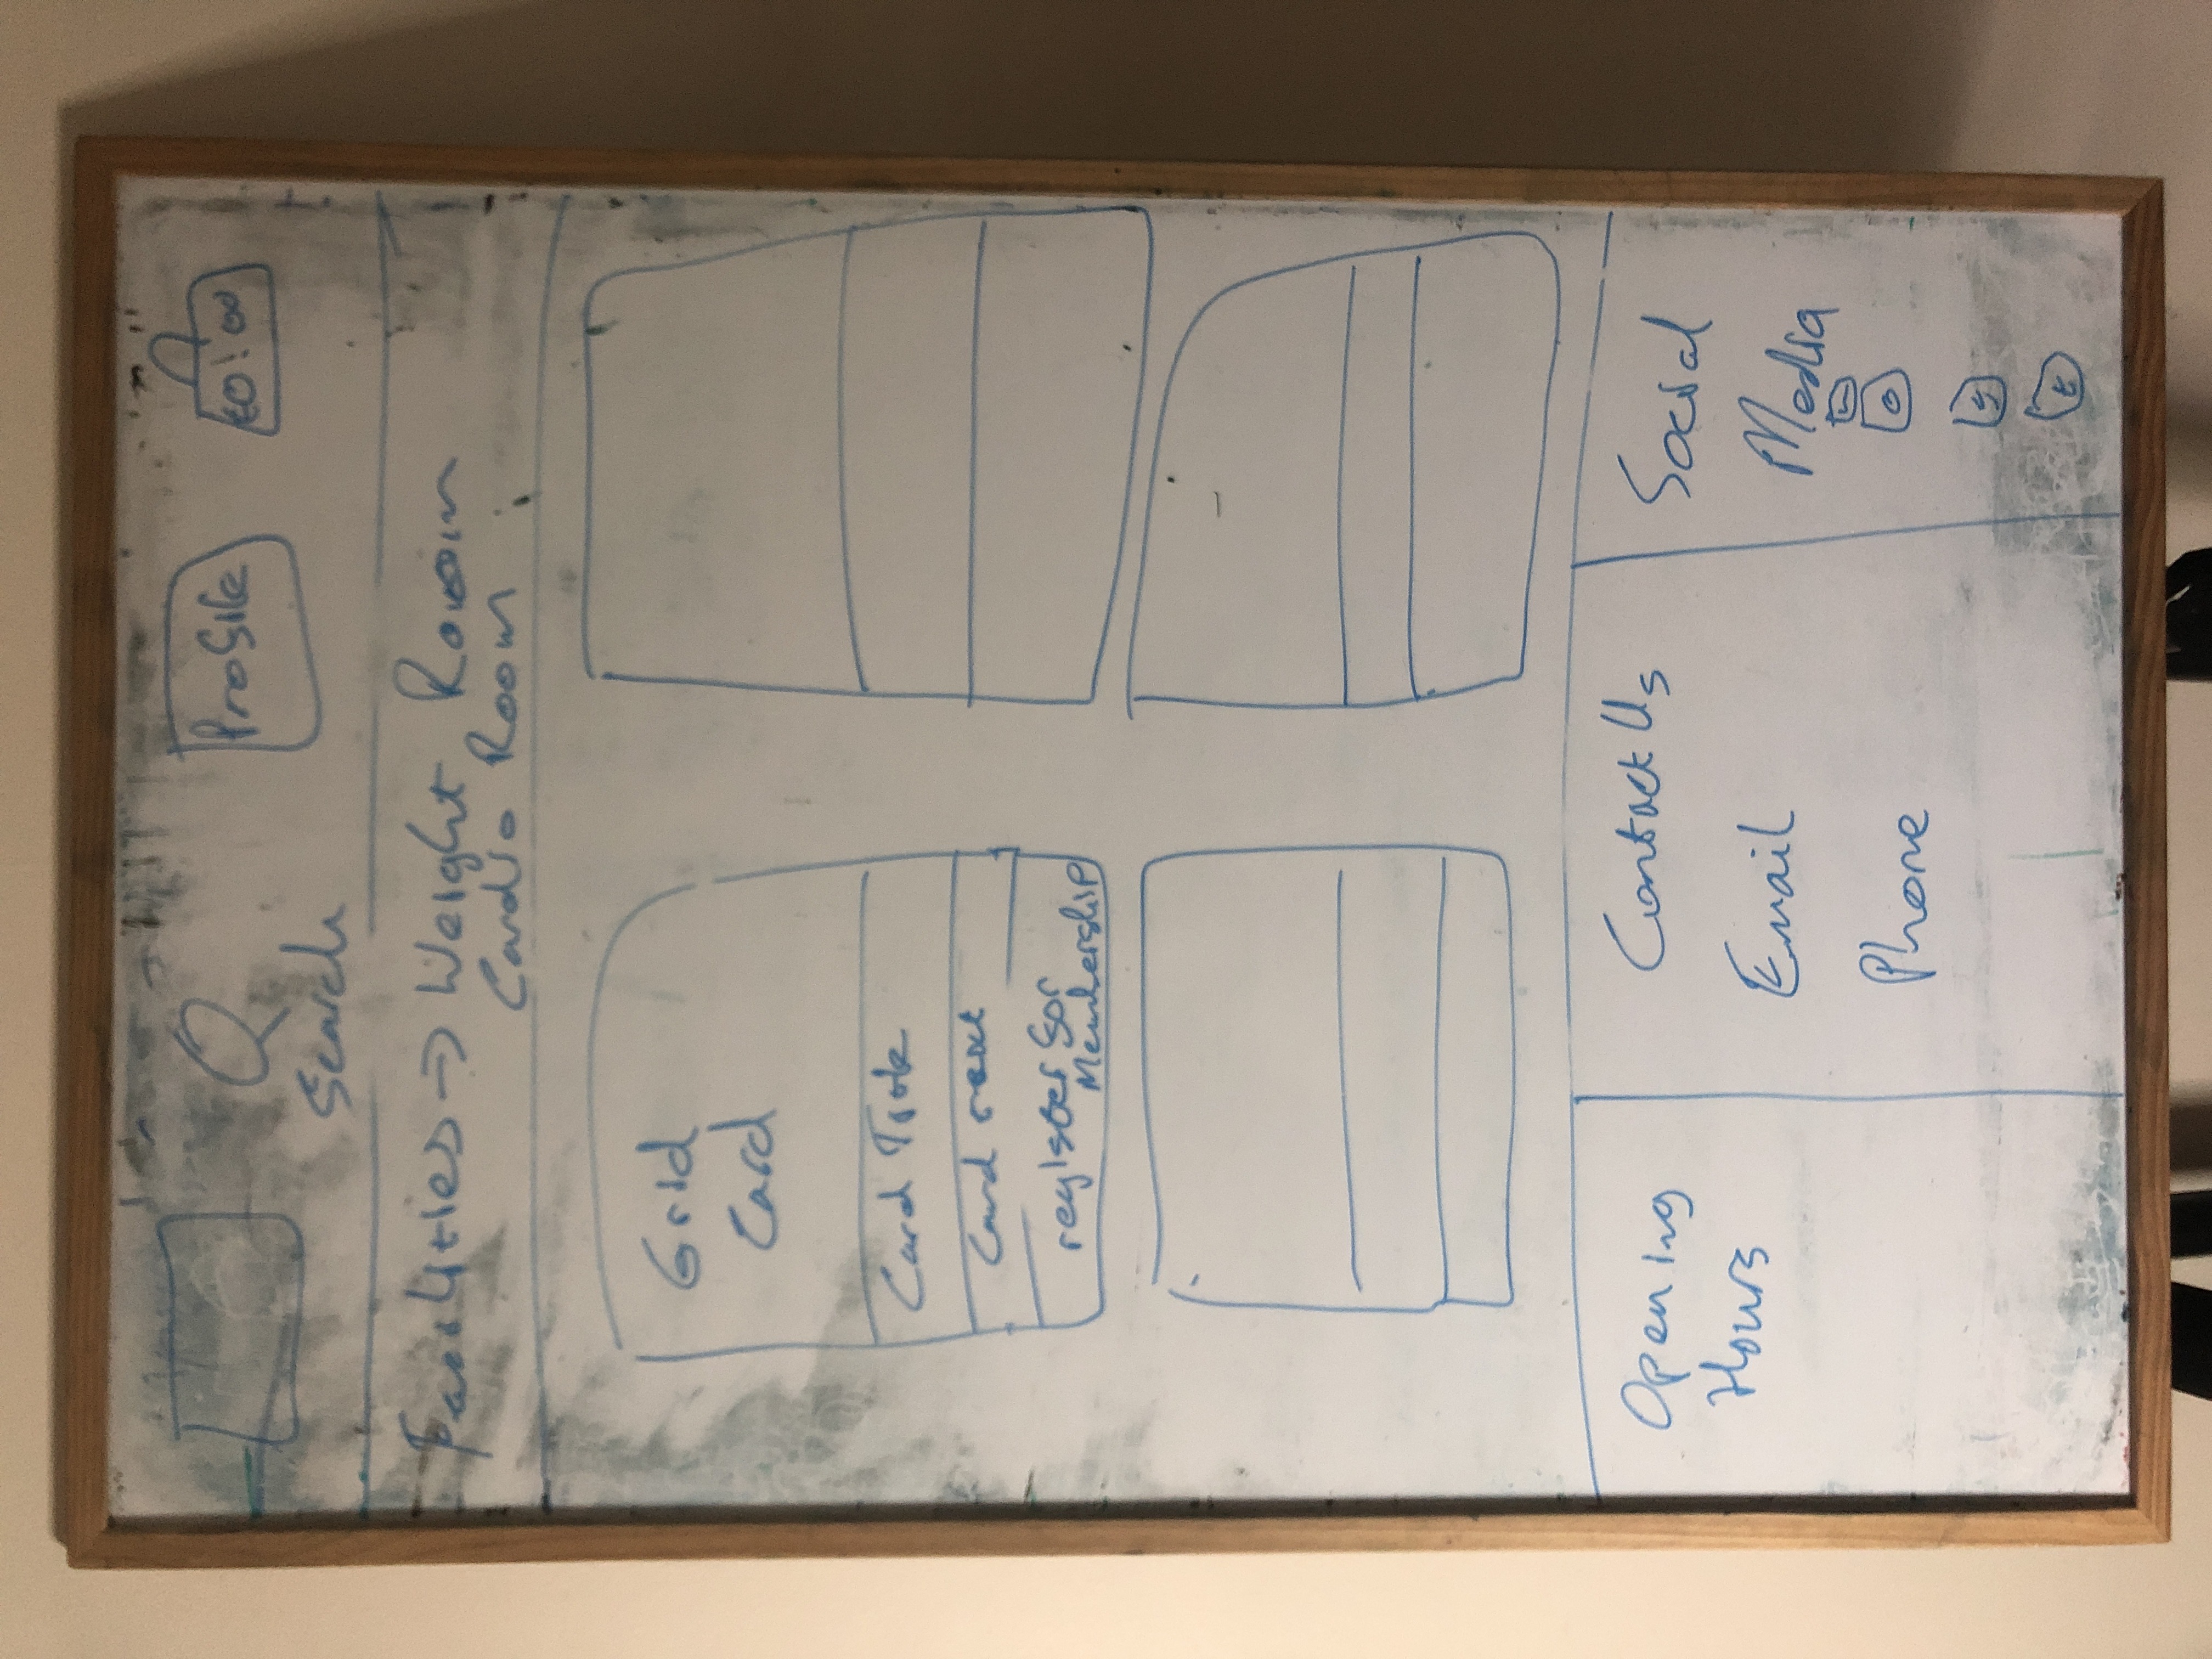 Search
Profile
€0.00
Facilities → Weight Room
Cardio Room
Grid
Card
Card Title
Card text
register for
Membership
Opening
Hours
Contact Us
Email
Phone
Social
Media